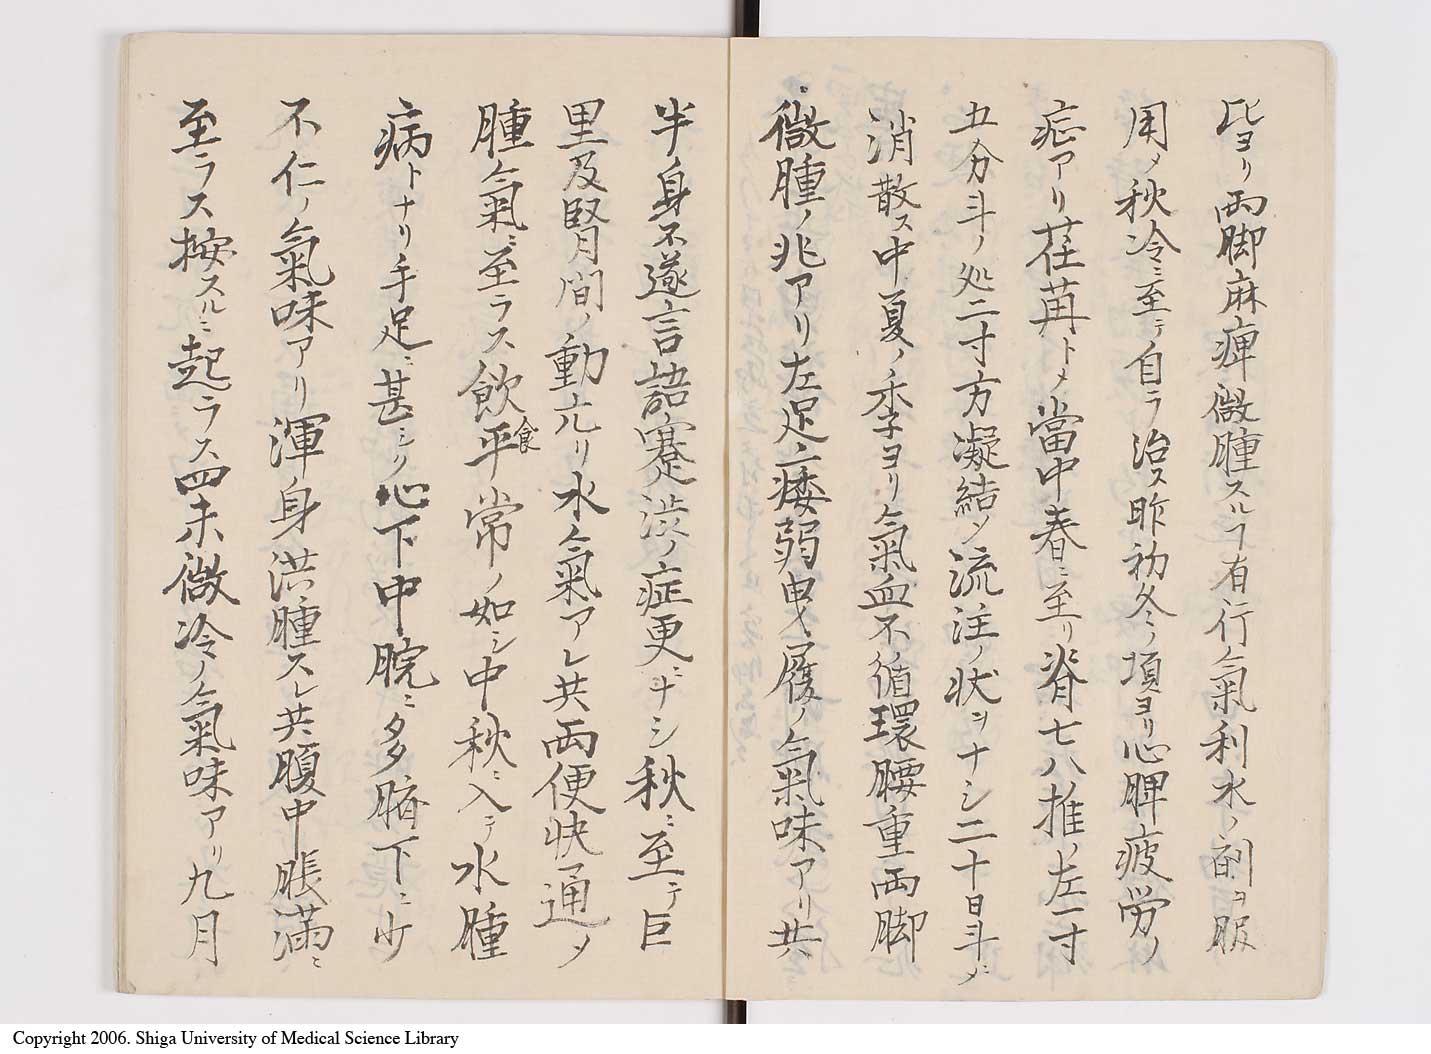 比ヨリ両脚麻痺微腫スルヿ有行氣利水ノ剤ヲ服
用〆秋冷ニ至テ自ラ治ス昨初冬ノ頃ヨリ心脾疲労ノ
症アリ荏苒ト〆當中春ニ至リ脊七八推ノ左一寸
五分斗ノ処二寸方凝結〆流注ノ状ヲナシ二十日斗ニ〆
消散ス中夏ノ季ヨリ氣血不循環腰重両脚
微腫ノ兆アリ左足ニ痿弱曳履ノ氣味アリ共
半身不遂言語蹇渋ノ症更ニナシ秋ニ至テ巨
里及腎間ノ動亢リ水氣アレ共両便快通〆
腫氣ニ至ラス飲食平常ノ如シ中秋ニ入テ水腫
病トナリ手足ニ甚シク心下中脘ニ多臍下ニ少
不仁ノ氣味アリ渾身洪腫スレ共腹中脹滿ニ
至ラス按スルニ起ラス四末微冷ノ氣味アリ九月
Copyright 2006. Shiga University of Medical Science Library